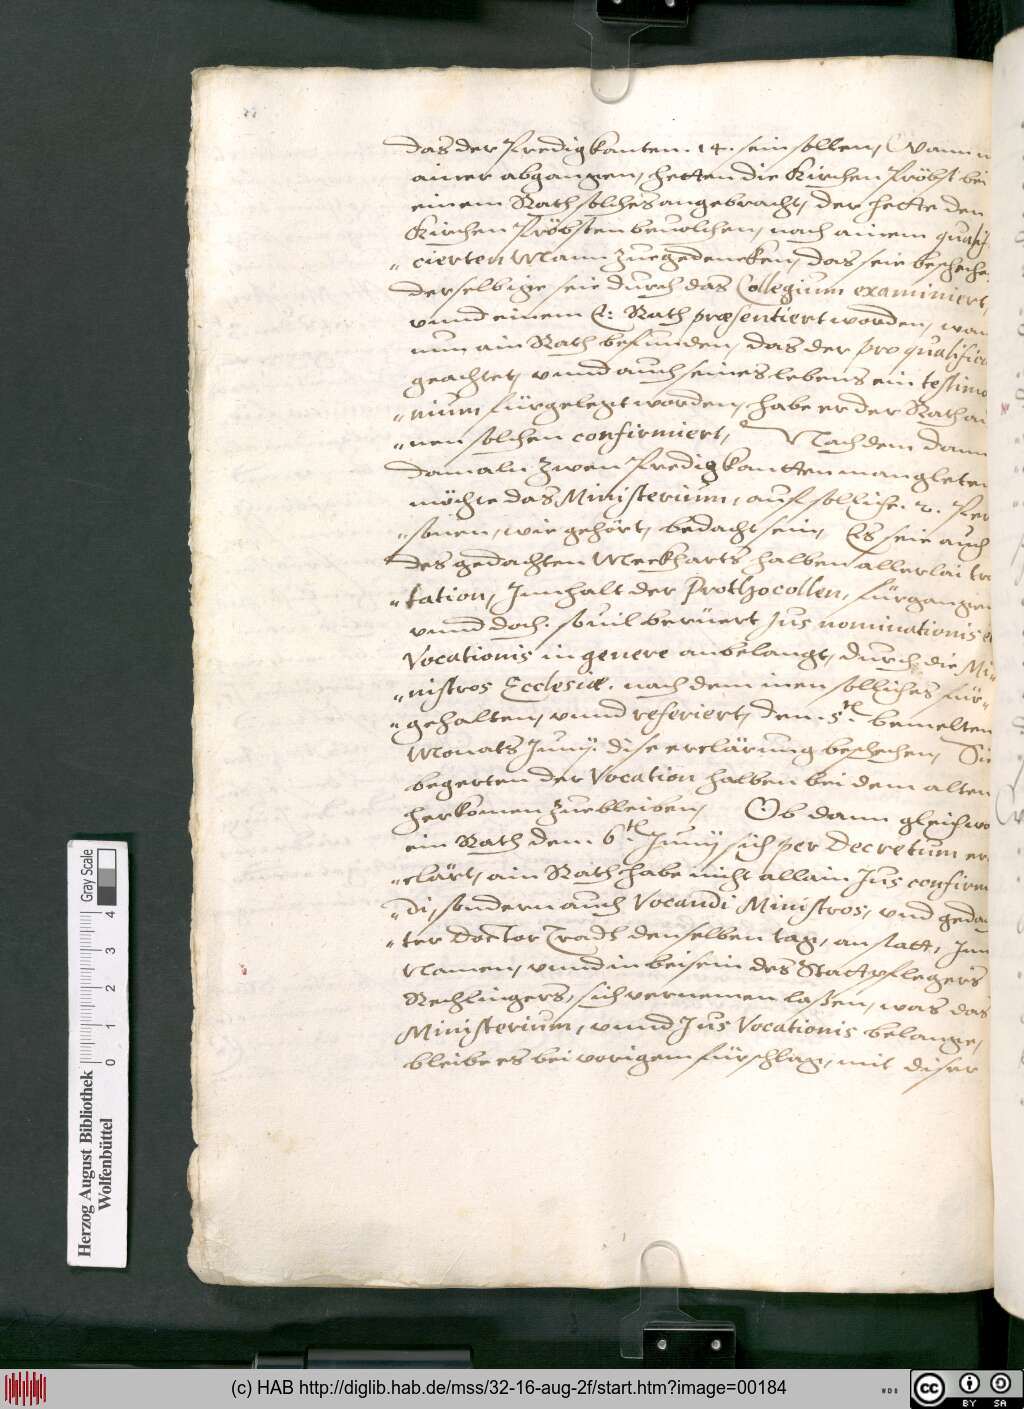 das der Predigkanten .14. sein sollen, Wann
ainer abgangen, hetten die Kirchen Pröbst bei
einem Rath solches angebracht, der hette den
Kirchen Pröbsten bevolchen, nach ainem qualifi
cierten Mann zuegedencken, das seie beschehe
derselbige seie durch das Collegium examiniert,
vnnd einem E: Rath præsentiert worden, wan
nun ain Rath befunden, das der pro qualific
geachtet, vnnd auch seines lebens ein testimo
nium fürgelegt worden, habe er der Rath ai
nen solchen confirmiert, Nach dem dann
damaln zwen Predigkantten mangleten
möchte das Ministerium, auf solliche .2. Per
sonen, wie gehört, bedacht sein, Es seie auch
des gedachten Meckharts halben allerlai tra
tation, Innhalt der Prothocollen, fürgangen
vnnd doch. souil berüert Jus nominationis et
Vocationis in genere anbelangt, durch die Mi
nistros Ecclesiæ. nach dem inen solliches für
gehalten, vnnd referiert, den .5.th bemelten
Monats Junij. dise erclärung beschehen, Sie
begerten der Vocation halben bei dem alten
herkomen zuebleiben, Ob dann gleichwo
ein Rath dem 6.th Junij sich per Decretum er
clärt, ain Rath habe nicht allain Jus confirm
di, sondern auch Vocandi Ministros, vnd gedac
ter Doctor Tradl denselben tag, anstatt, Inn
Namen, vnnd in beisein des Stattpflegers
Rechlingers, sich vernemen laßen, was das
Ministerium, vnnd Jus Vocationis belange,
bleibe es bei vorigem fürschlag, mit diser
Herzog August Bibliothek
Wolfenbüttel
0 1 2 3 4
Gray Scale
(c) HAB http://diglib.hab.de/mss/32-16-aug-2f/start.htm?image=00184
WDB
CC BY SA